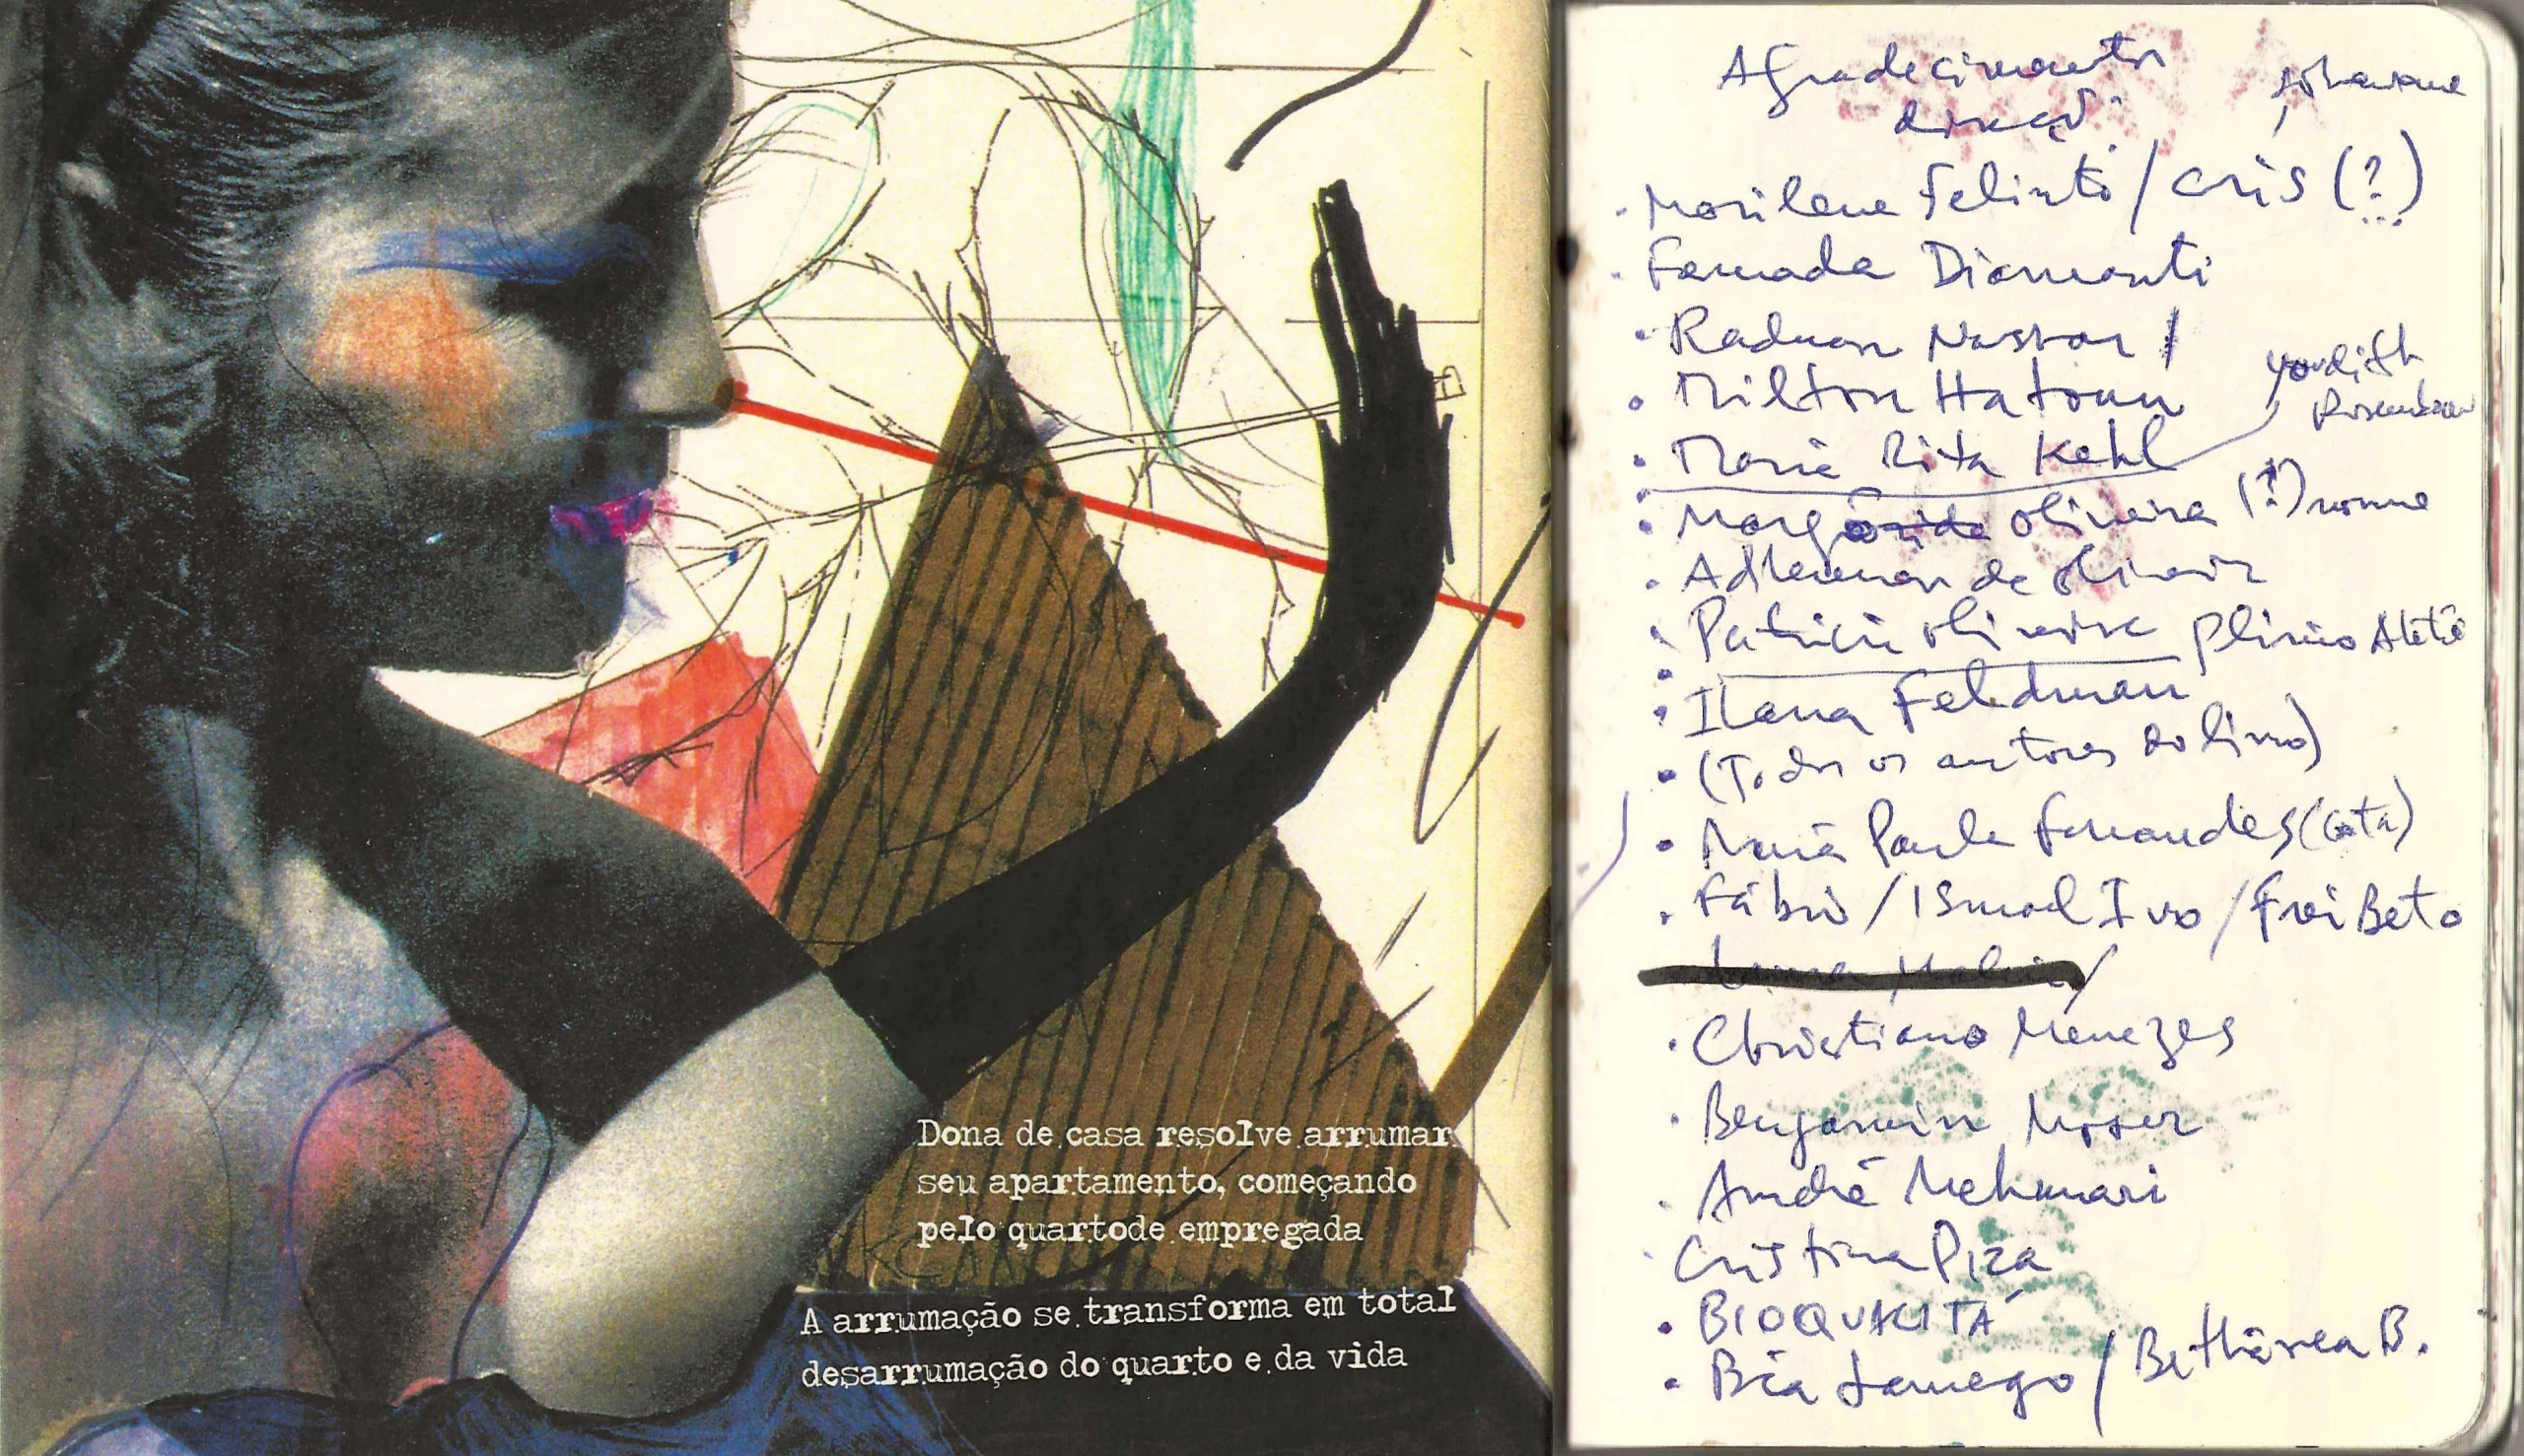 Dona de casa resolve arrumar
seu apartamento, começando
pelo quartode empregada
A arrumação se transforma em total
desarrumação do quarto e da vida
Agradecimentos
direção:
Marilene Felinto / Cris (?)
Fernanda Diamant
Raduan Nassar /
Milton Hatoum
Yudith
Rosenbaum
Maria Rita Kehl
Oliveira (?) nome
Adhemar de Oliveira
Patricia Oliveira Plinio
Ilana Feldman
(Todos os autores do livro)
Maria Paula Fernandes (Gota)
Fábio / Ismael Ivo / Frei Beto
Christiano Menezes
Benjamin Moser
André Mehmari
Cristina Piza
BIOQUALITÁ
Bia Lamego / Bethânea B.